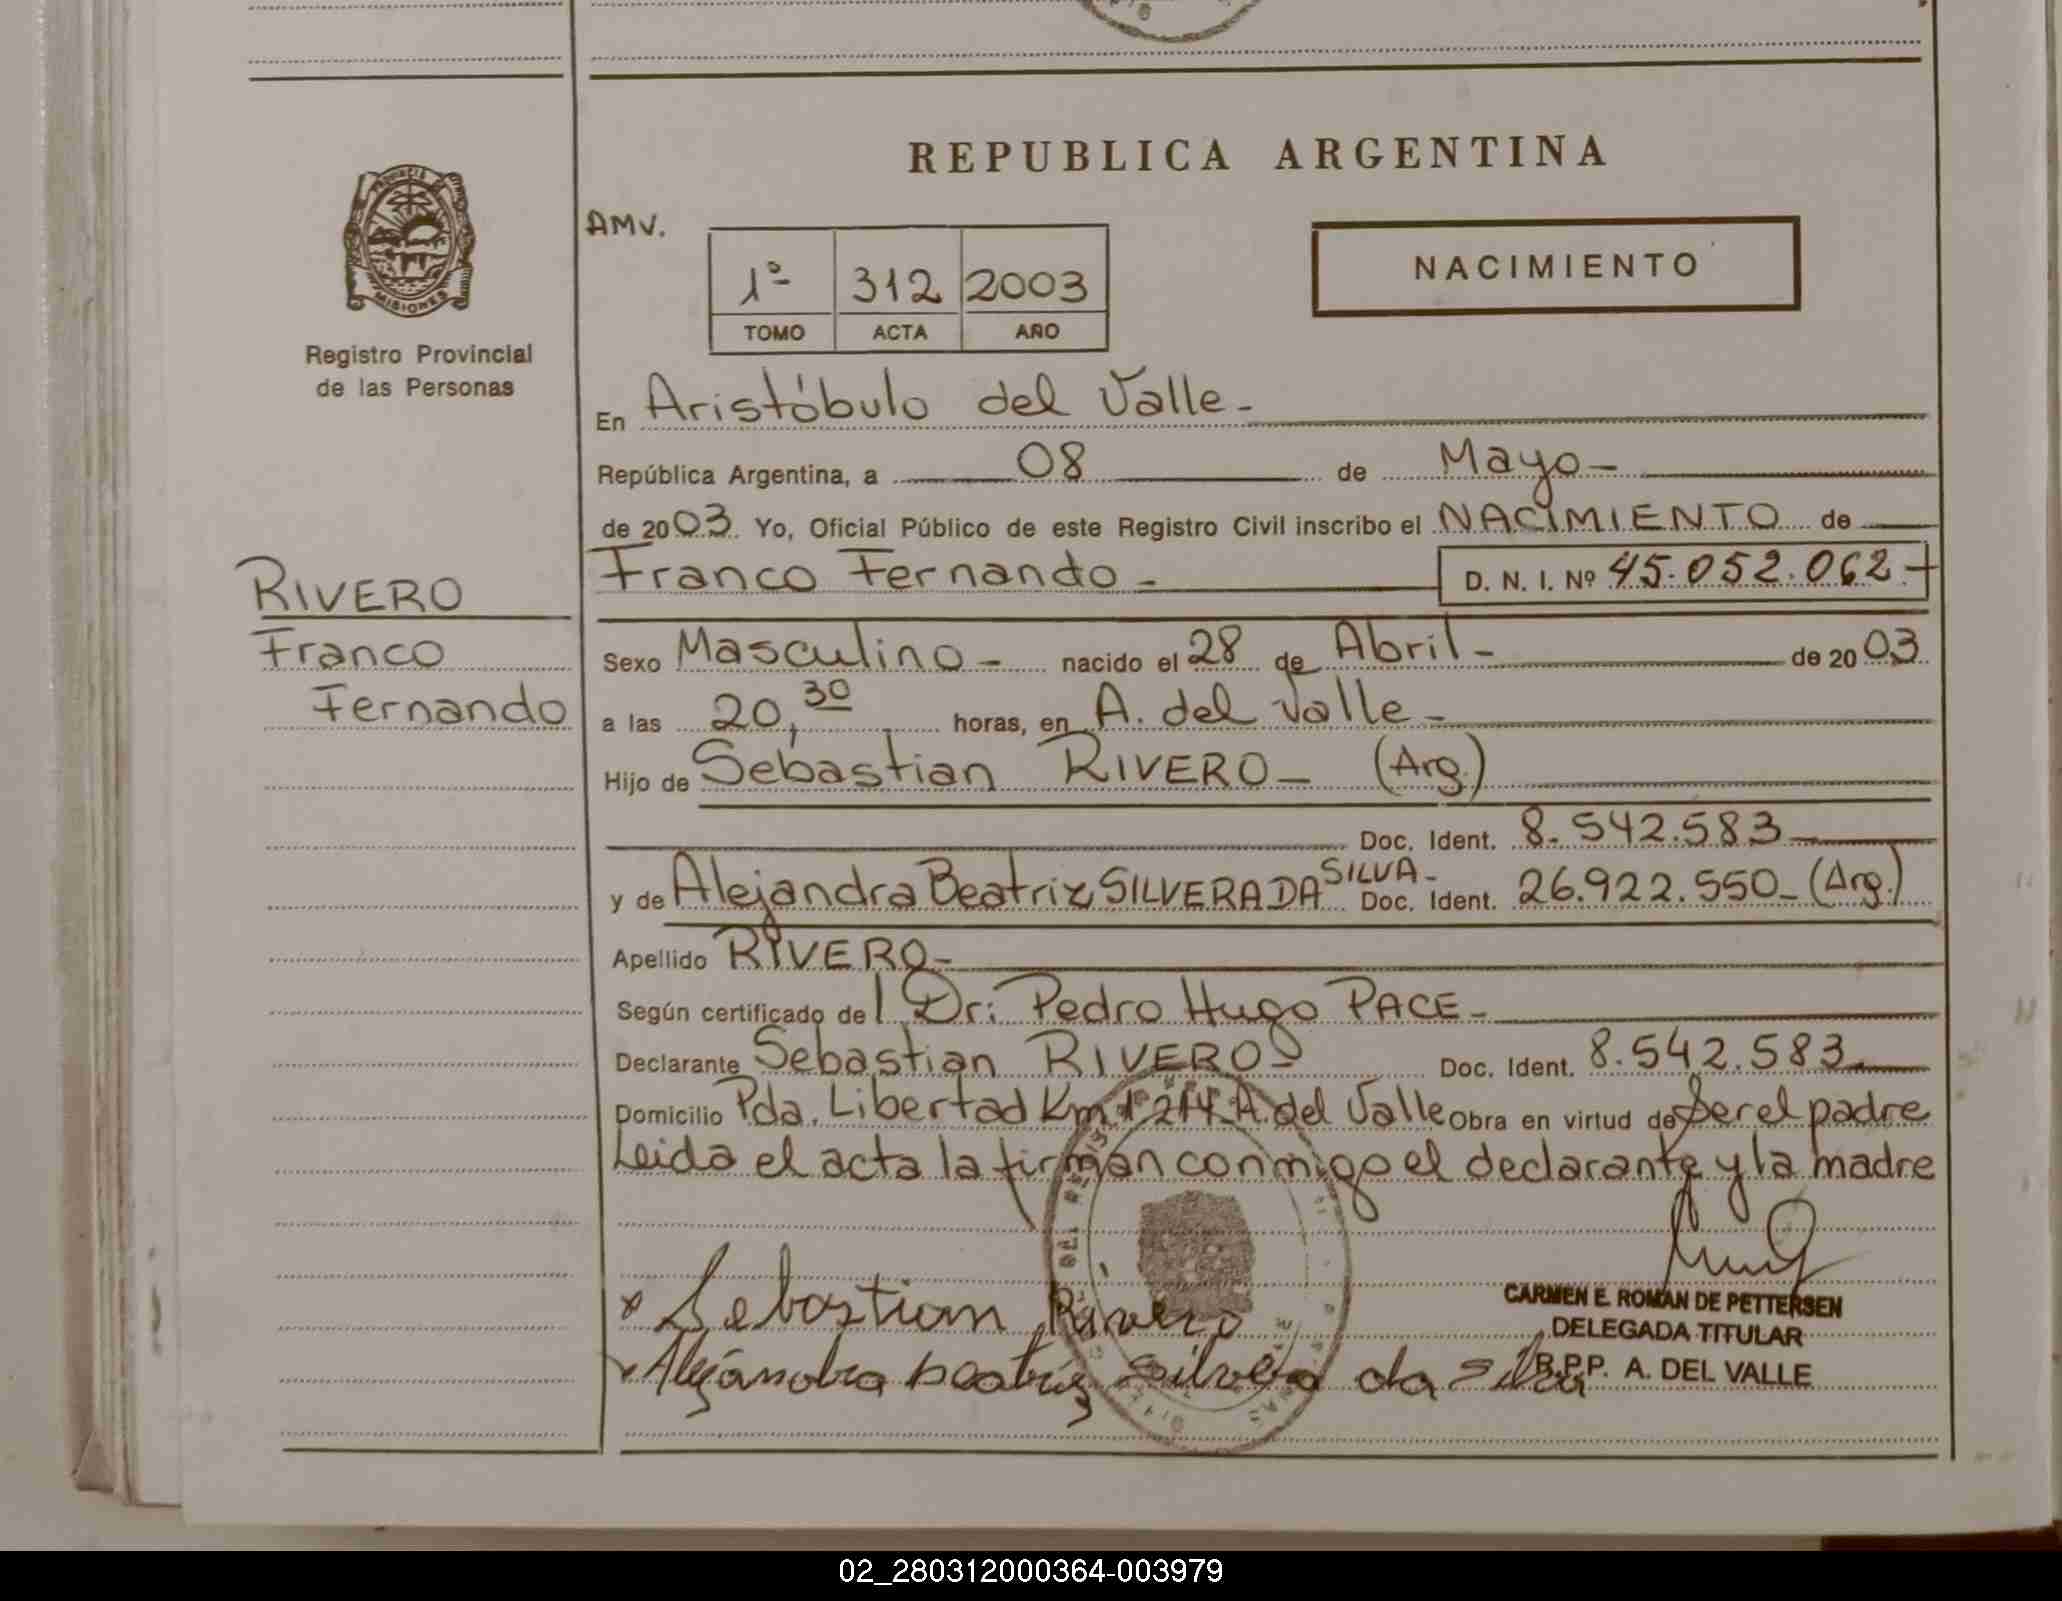 REPUBLICA ARGENTINA
PROVINCIA DE
MISIONES
Registro Provincial
de las Personas
AMV.
1º 312 2003
TOMO ACTA AÑO
NACIMIENTO
En Aristóbulo del Valle-
República Argentina, a 08 de Mayo-
de 2003. Yo, Oficial Público de este Registro Civil inscribo el NACIMIENTO de
RIVERO
Franco
Fernando
Franco Fernando - D. N. I. Nº 45.052.062-
Sexo Masculino - nacido el 28 de Abril - de 2003
a las 20,30 horas, en A. del Valle -
Hijo de Sebastian RIVERO - (Arg.)
Doc. Ident. 8.542.583-
y de Alejandra Beatriz SILVERA DA SILVA- Doc. Ident. 26.922.550- (Arg.)
Apellido RIVERO-
Según certificado del Dr: Pedro Hugo PACE-
Declarante Sebastian RIVERO- Doc. Ident. 8.542.583-
Domicilio Pda. Libertad Km 1214 A. del Valle Obra en virtud de Ser el padre
Leida el acta la firman conmigo el declarante y la madre
x Sebastian Rivero
x Alejandra beatriz Silvera da Silva
CARMEN E. ROMAN DE PETTERSEN
DELEGADA TITULAR
R.P.P. A. DEL VALLE
02_280312000364-003979